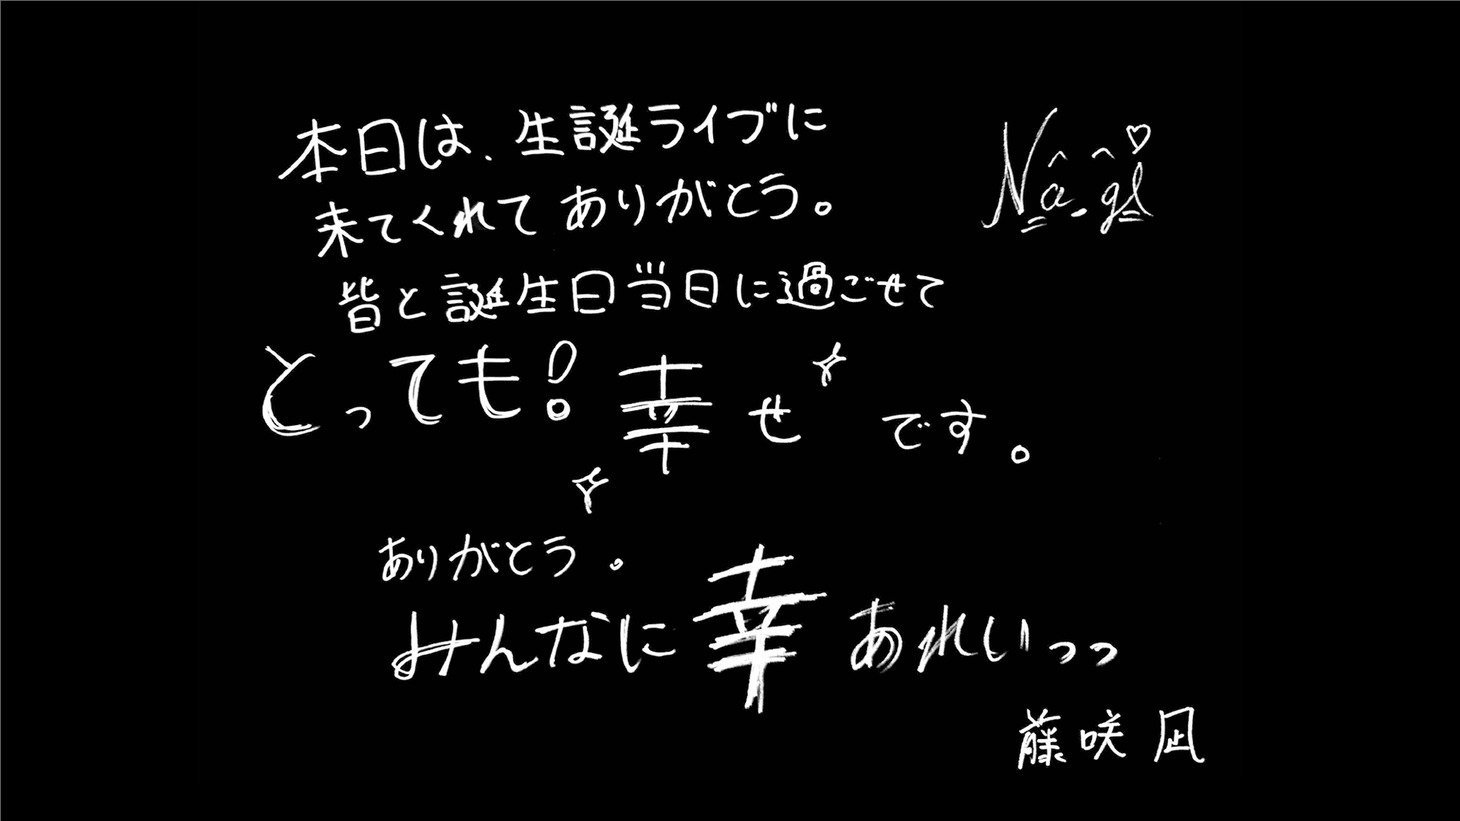 本日は、生誕ライブに
来てくれてありがとう。
皆と誕生日当日に過ごせて
とっても!幸せです。
ありがとう。
みんなに幸あれいっっ
藤咲凪
Nagi